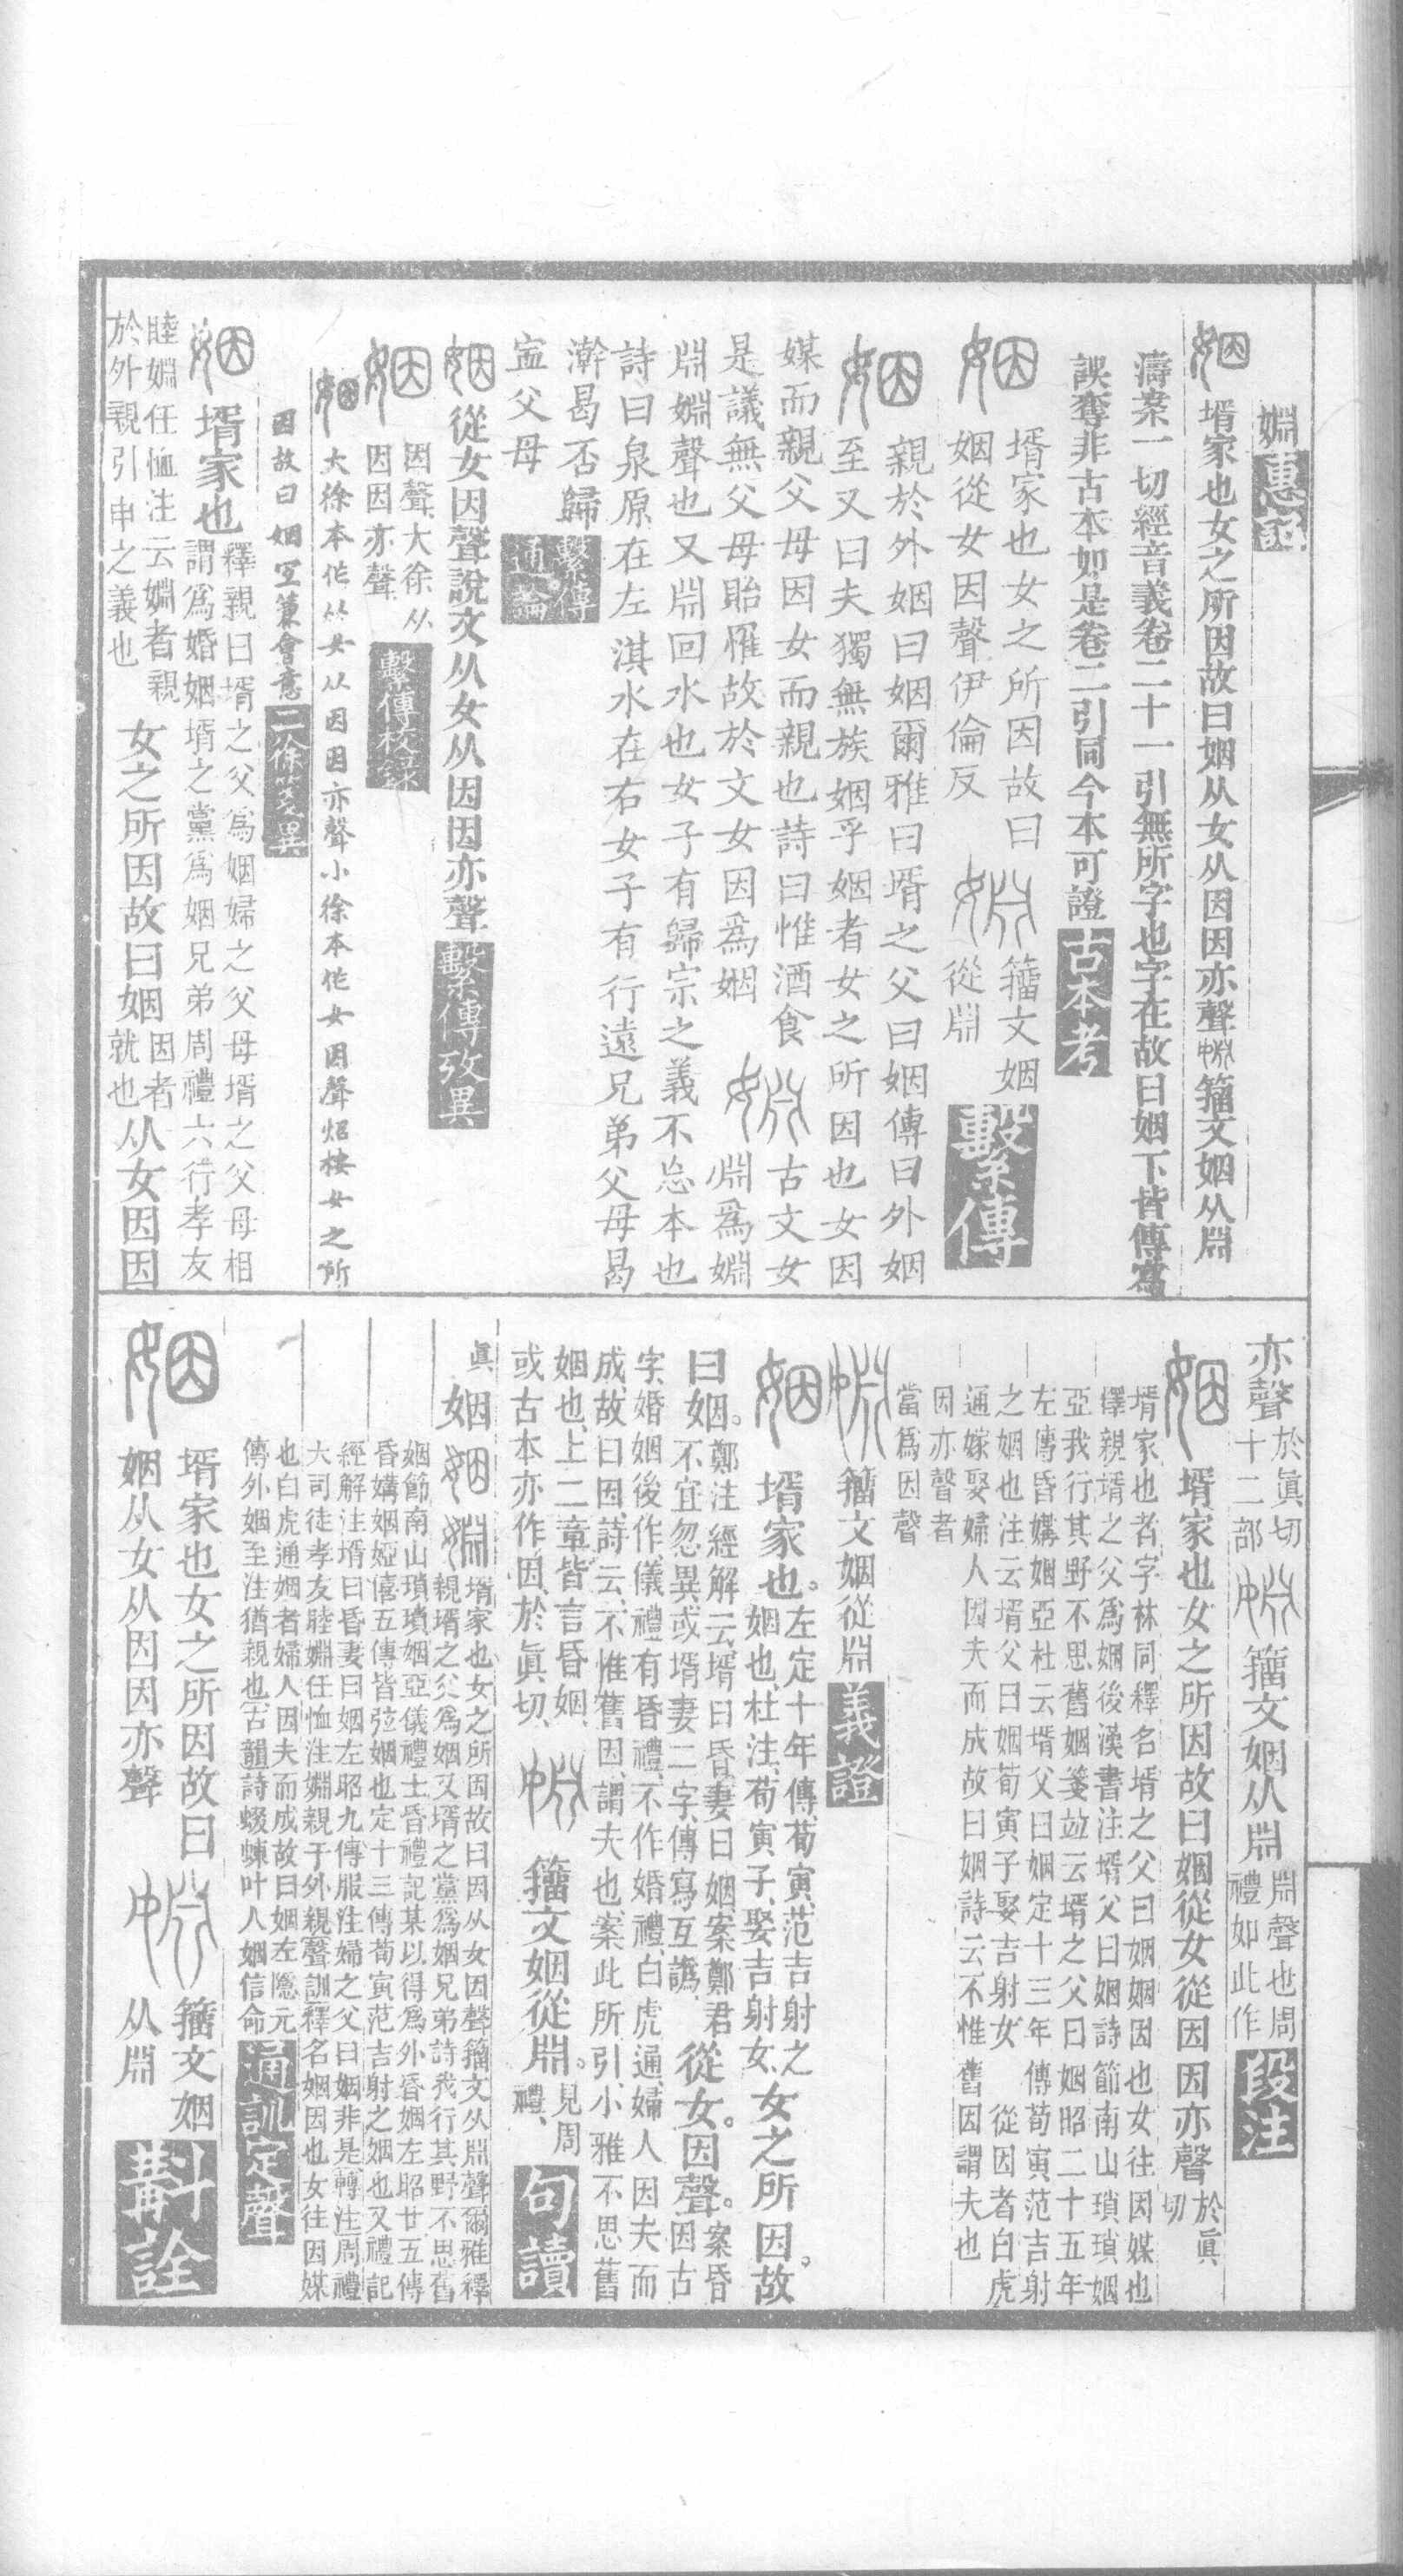 婣惠記
姻壻家也女之所因故曰姻从女从因因亦聲𡣬籀文姻从𣶒
濤案一切經音義卷二十一引無所字也字在故曰姻下皆傳寫
誤奪非古本如是卷二引同今本可證古本考
姻
壻家也女之所因故曰
姻從女因聲伊倫反
婣
籀文姻
從𣶒
繫傳
姻
親於外姻曰姻爾雅曰壻之父曰姻傳曰外姻
至又曰夫獨無族姻乎姻者女之所因也女因
媒而親父母因女而親也詩曰惟酒食
是議無父母貽罹故於文女因爲姻
婣
古文女
𣶒爲婣
𣶒婣聲也又𣶒回水也女子有歸宗之義不忘本也
詩曰泉原在左淇水在右女子有行遠兄弟父母曷
澣曷否歸
寍父母
繫傳
通論
姻從女因聲說文从女从因因亦聲繫傳攷異
姻
因聲大徐从
因因亦聲
繫傳校錄
姻大徐本作从女从因因亦聲小徐本作女因聲炤按女之所
因故曰姻宜兼會意二徐箋異
姻壻家也
釋親曰壻之父爲姻婦之父母壻之父母相
謂爲婚姻壻之黨爲姻兄弟周禮六行孝友
睦婣任恤注云婣者親
於外親引申之義也
女之所因故曰姻
因者
就也
从女因因
亦聲
於眞切
十二部
婣籀文姻从𣶒
𣶒聲也周
禮如此作
段注
姻壻家也女之所因故曰姻從女從因因亦聲
於眞
切
壻家也者字林同釋名壻之父曰姻姻因也女往因媒也
釋親壻之父爲姻後漢書注壻父曰姻詩節南山瑣瑣姻
亞我行其野不思舊姻箋竝云壻之父曰姻昭二十五年
左傳昏媾姻亞杜云壻父曰姻定十三年傳荀寅范吉射
之姻也注云壻父曰姻荀寅子娶吉射女 從因者白虎
通嫁娶婦人因夫而成故曰姻詩云不惟舊因謂夫也
因亦聲者
當爲因聲
婣籀文姻從𣶒義證
姻壻家也。
左定十年傳、荀寅、范吉射之
姻也、杜注、荀寅子、娶吉射女、
女之所因。故
曰姻。
鄭注經解云、壻曰昏、妻曰姻、案鄭君
不宜忽異、或壻妻二字、傳寫互譌、
從女。因聲。
案昏
因古
字、婚姻後作、儀禮有昏禮、不作婚禮、白虎通、婦人因夫而
成、故曰因、詩云、不惟舊因、謂夫也、案此所引、小雅不思舊
姻也、上二章皆言昏姻、
或古本亦作因、於眞切、
婣籀文姻從𣶒。
見周
禮、
句讀
眞
姻姻婣
壻家也女之所因故曰因从女因聲籀文从𣶒聲爾雅釋
親壻之父爲姻又壻之黨爲姻兄弟詩我行其野不思舊
姻節南山瑣瑣姻亞儀禮士昏禮記某以得爲外昏姻左昭廿五傳
昏媾姻婭僖五傳皆弦姻也定十三傳荀寅范吉射之姻也又禮記
經解注壻曰昏妻曰姻左昭九傳服注婦之父曰姻非是轉注周禮
大司徒孝友睦婣任恤注婣親于外親聲訓釋名姻因也女往因媒
也白虎通姻者婦人因夫而成故曰姻左隱元
傳外姻至注猶親也古韻詩蝃蝀叶人姻信命
通訓定聲
姻
壻家也女之所因故曰
姻从女从因因亦聲
婣
籀文姻
从𣶒
斠詮